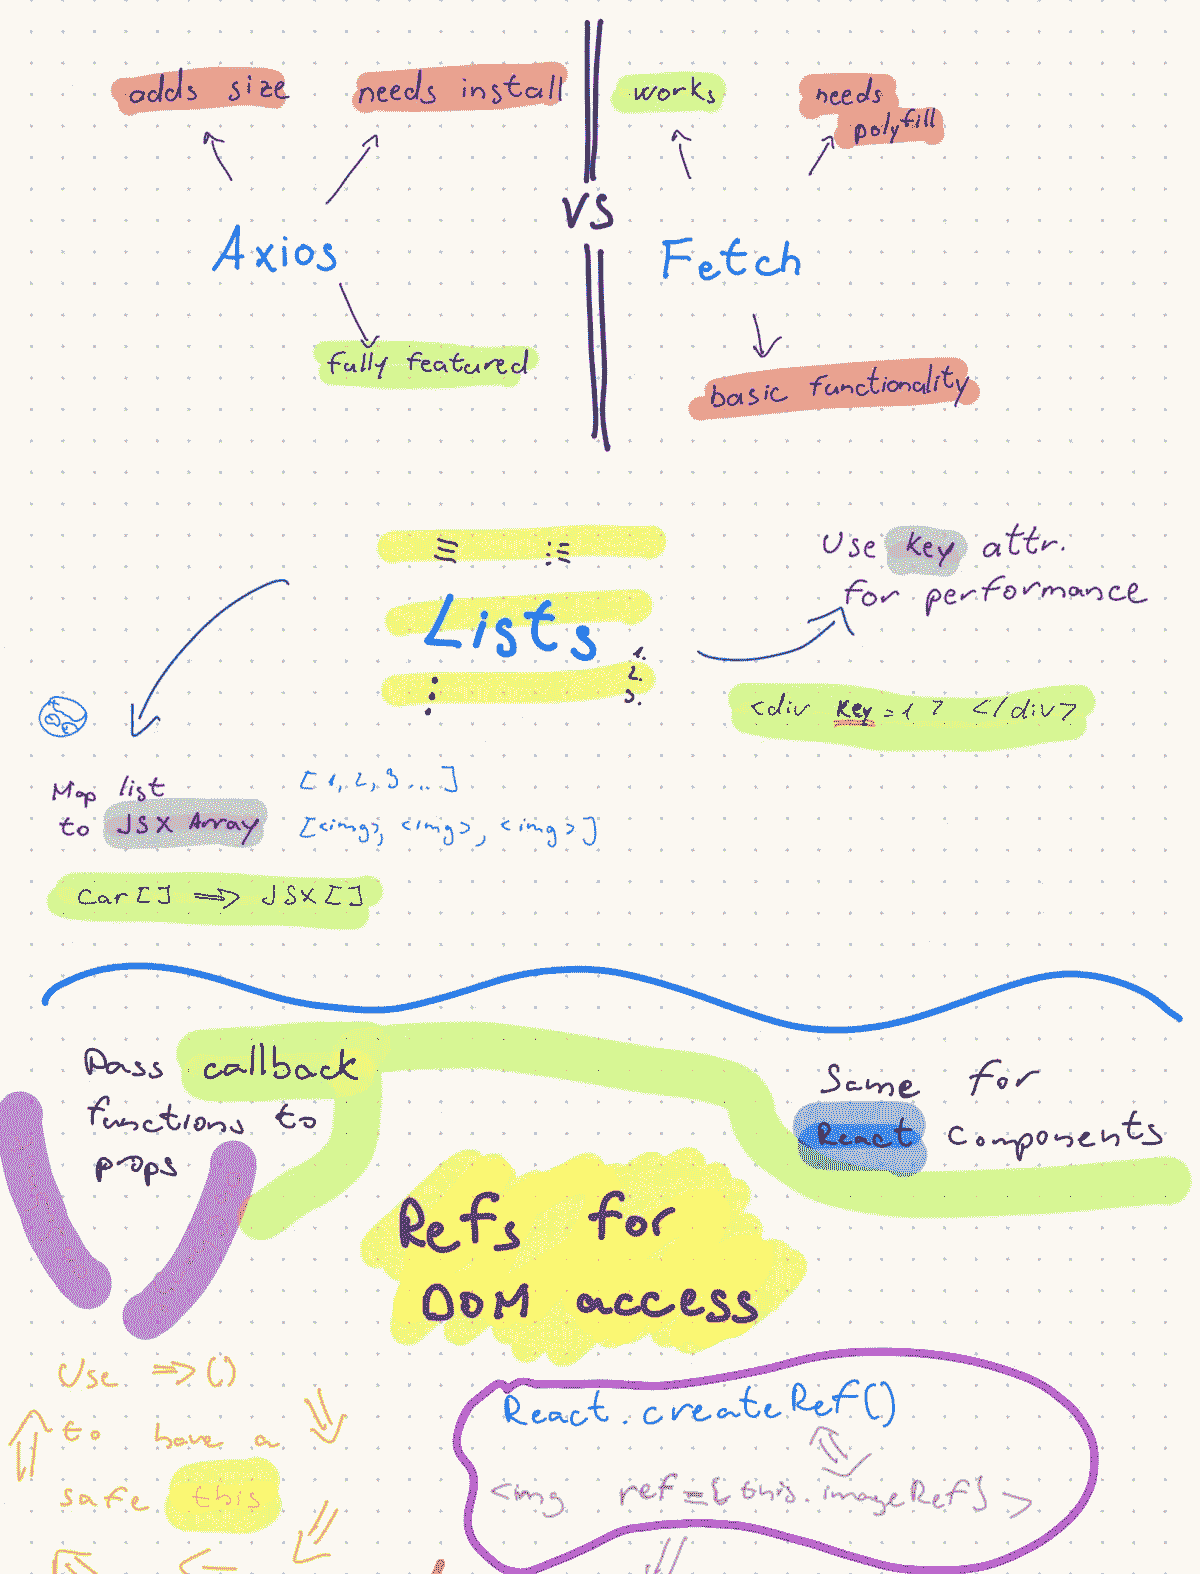 adds size
needs install
works
needs
polyfill
VS
Axios
Fetch
fully featured
basic functionality
Use key attr.
for performance
Lists
1.
2.
3.
<div key=1 > </div>
Map list
to JSX Array
[1, 2, 3 ...]
[<img>, <img>, <img>]
Car[] => JSX[]
Pass callback
functions to
props
Same for
React components
Refs for
DOM access
Use =>()
to have a
safe this
React.createRef()
<img ref={this.imageRef} >